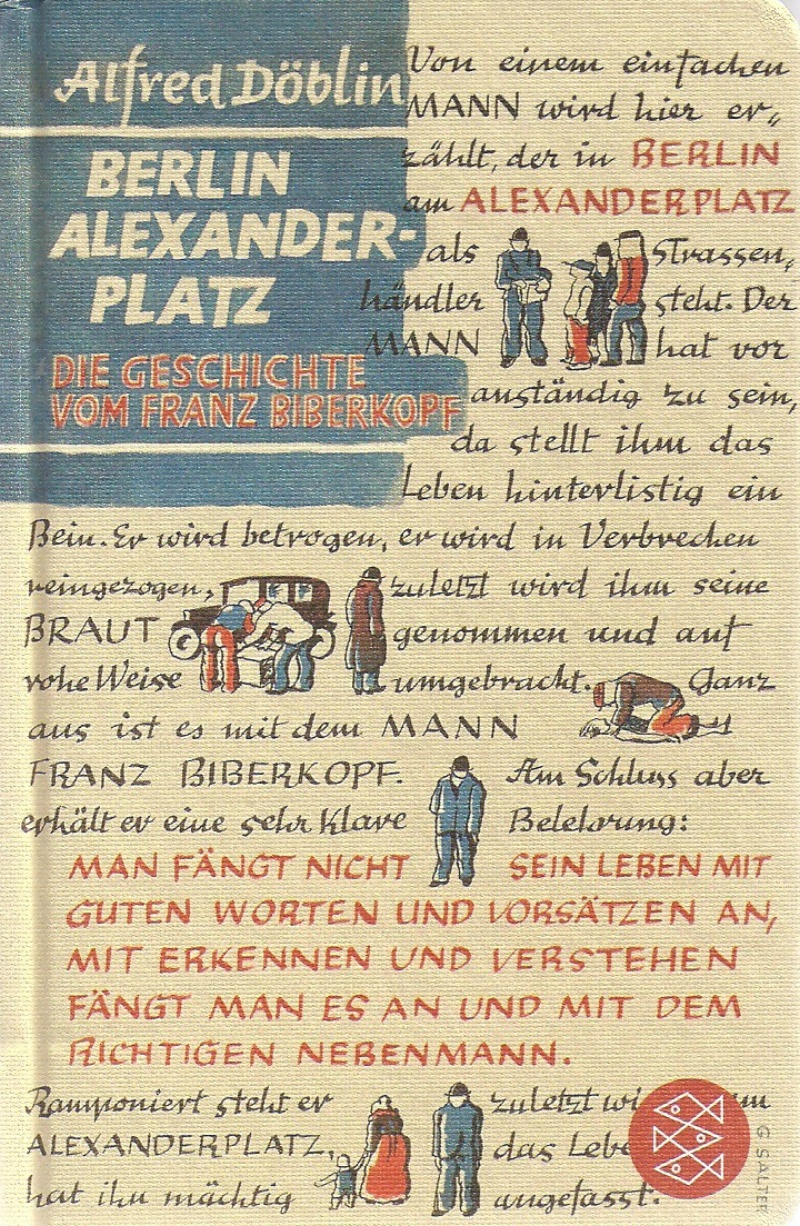 Alfred Döblin
BERLIN
ALEXANDER-
PLATZ
DIE GESCHICHTE
VOM FRANZ BIBERKOPF
Von einem einfachen
MANN wird hier er-
zählt, der in BERLIN
am ALEXANDERPLATZ
als Strassen-
händler steht. Der
MANN hat vor
anständig zu sein,
da stellt ihm das
Leben hinterlistig ein
Bein. Er wird betrogen, er wird in Verbrechen
reingezogen, zuletzt wird ihm seine
BRAUT genommen und auf
rohe Weise umgebracht. Ganz
aus ist es mit dem MANN
FRANZ BIBERKOPF. Am Schluss aber
erhält er eine sehr klare Belehrung:
MAN FÄNGT NICHT SEIN LEBEN MIT
GUTEN WORTEN UND VORSÄTZEN AN,
MIT ERKENNEN UND VERSTEHEN
FÄNGT MAN ES AN UND MIT DEM
RICHTIGEN NEBENMANN.
Ramponiert steht er zuletzt
ALEXANDERPLATZ, das
hat ihn mächtig angefasst.
G SALTER